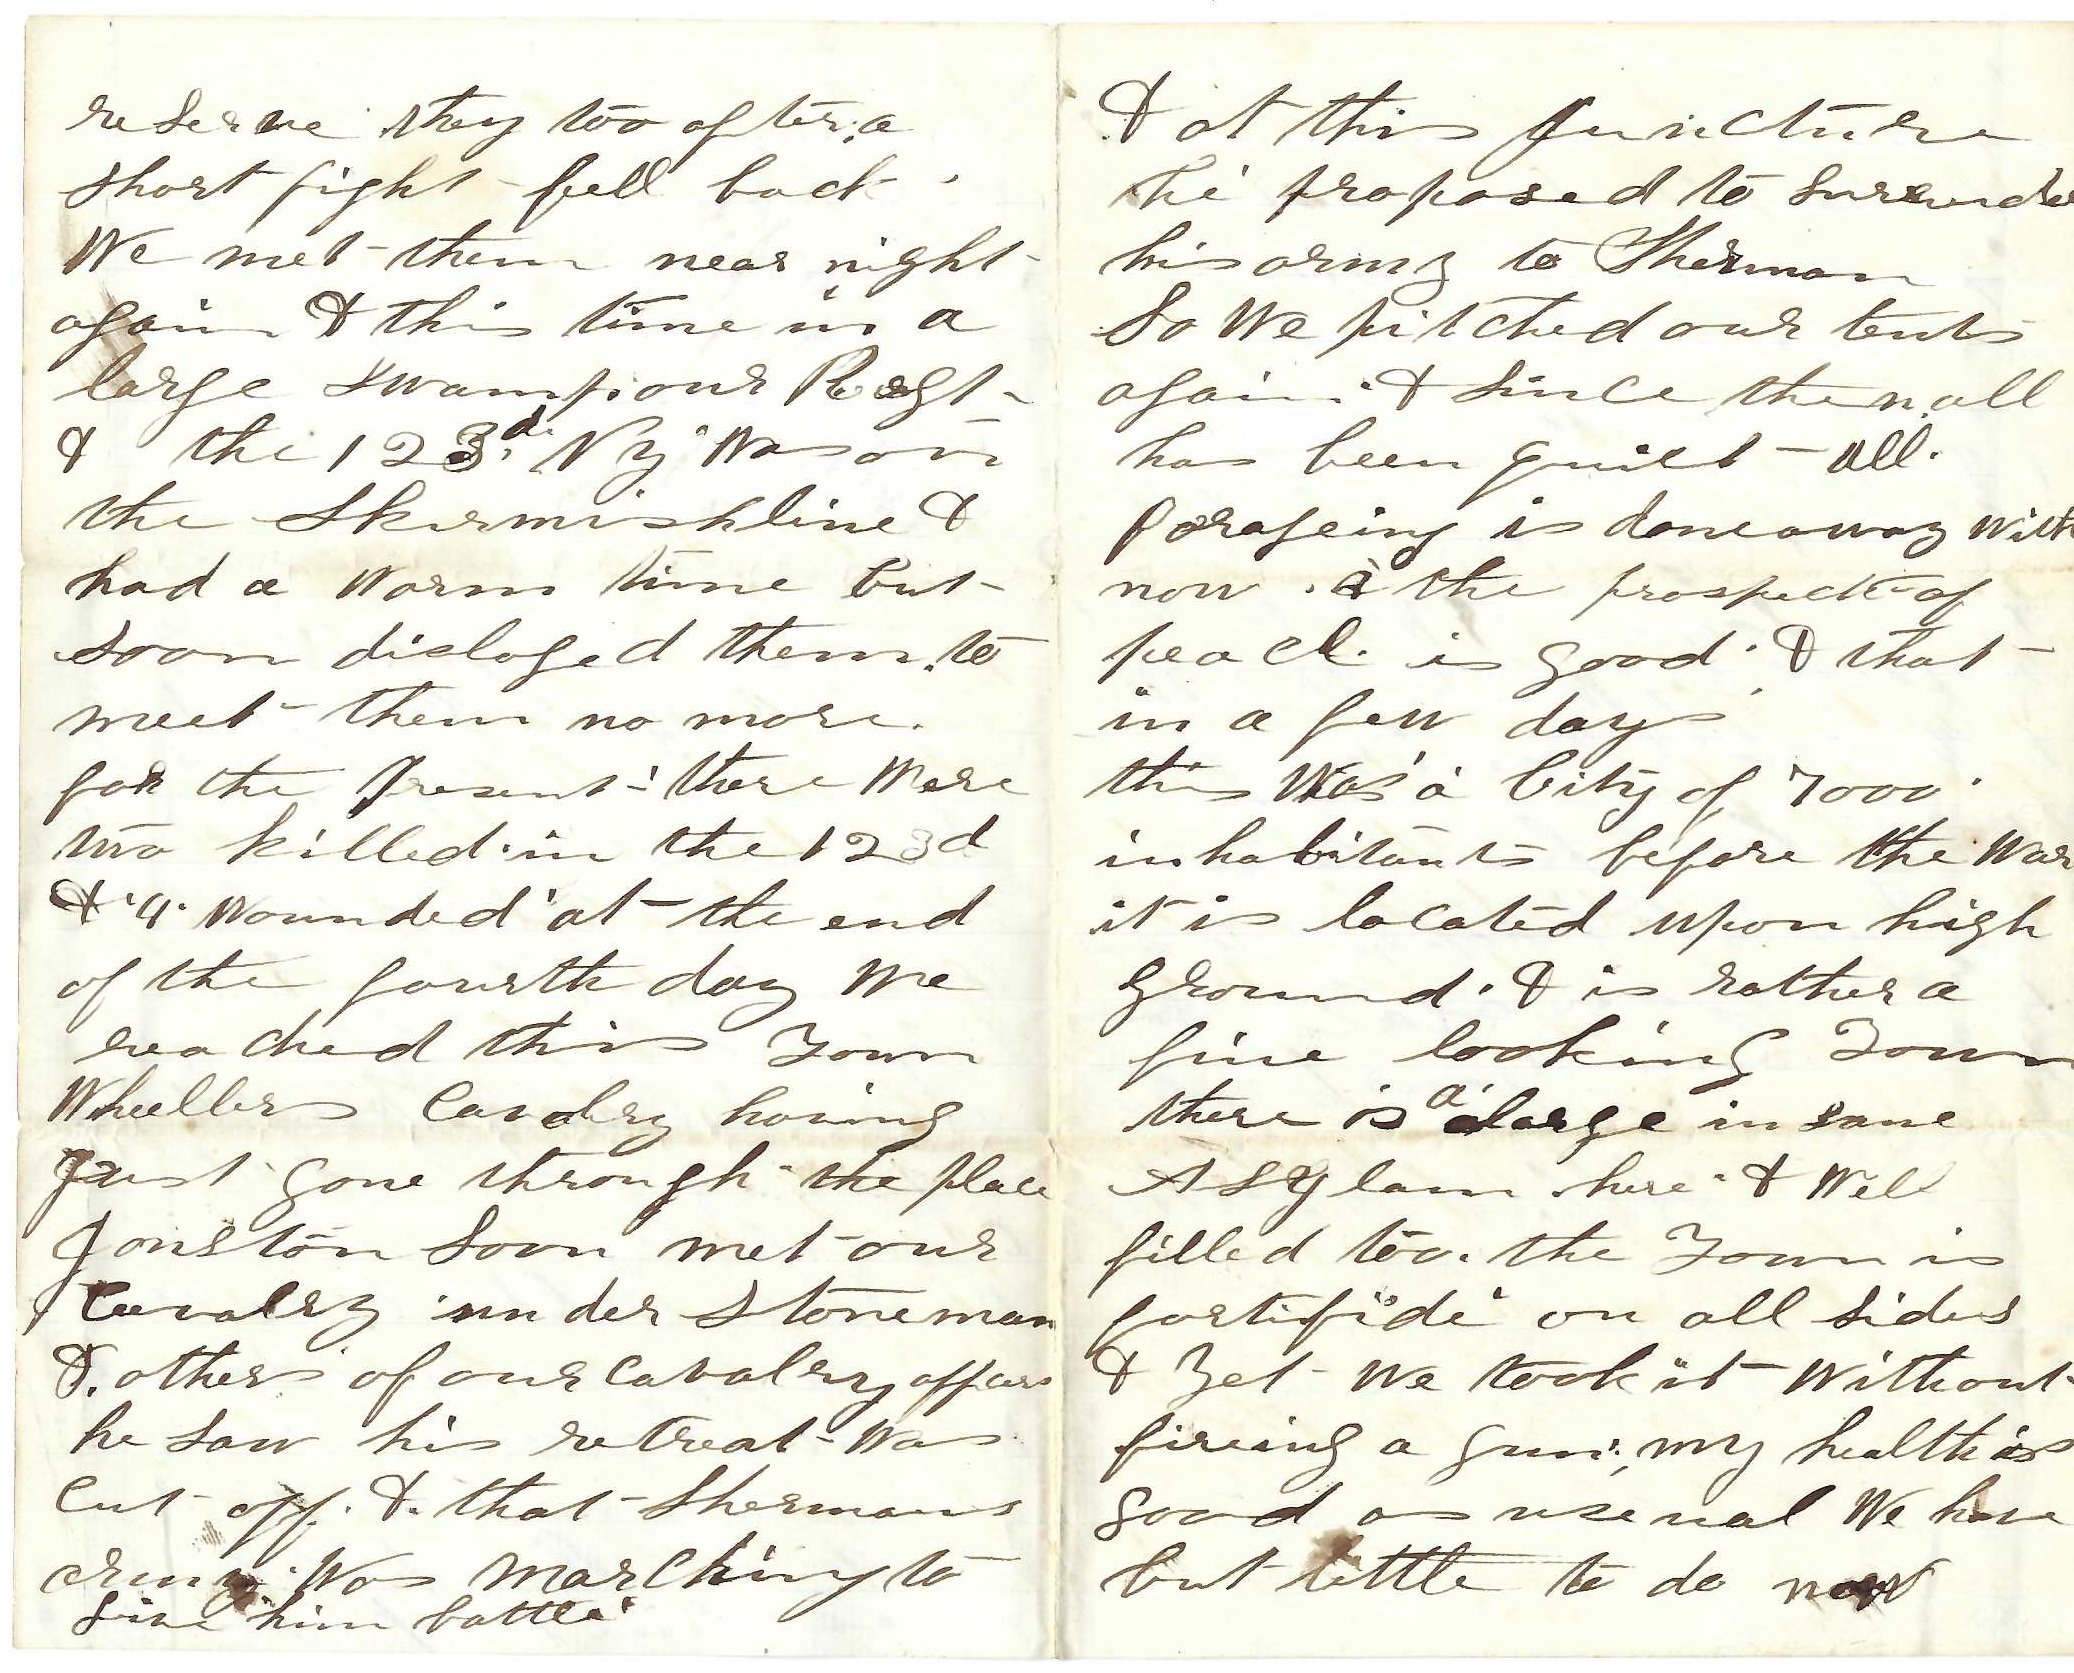 reserve they too after a
short fight fell back
We met them near night
again & this time in a
large swamp our Regt
& the 123d NY Was on
the Skirmishline &
had a Warm time but
soon disloged them to
meet them no more.
for the Present there Were
two killed in the 123d
& 4 Wounded at the end
of the fourth day We
reached this Town
Wheellers Cavalry having
Just gone through the place
Jonston Soon met our
Cavalry under Stoneman
& others of our Cavalry officers
he saw his retreat Was
Cut off. & that Shermans
army Was Marching to
give him battle
& at this Juncture
he proposed to Surrender
his army to Sherman
So We pitched our tents
again & since then all
has been quiet all
forageing is done away With
now & the prospect of
peace is good & that
in a few days
this Was a City of 7000
inhabitants before the War
it is located upon high
ground. & is rather a
fine looking Town
there is a large insane
Asylam here & Well
filled too. the Town is
fortifide on all sides
& Yet We took it Without
fireing a gun. my health is
good as usenal We have
but little to do now